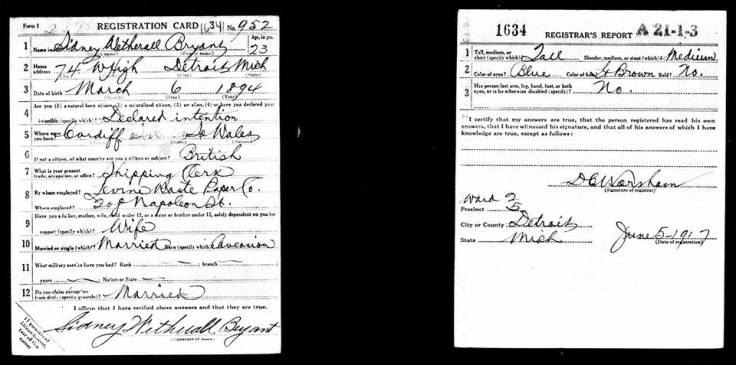 Form 1 REGISTRATION CARD 1634 No. 952
1 Name in full Sidney Wetherall Bryant Age, in yrs. 23
2 Home address 74 W High Detroit Mich
3 Date of birth March 6 1894
4 Are you (1) a natural-born citizen, (2) a naturalized citizen, (3) an alien, (4) or have you declared your
intention (specify which)? Declared intention
5 Where were you born? Cardiff So Wales
6 If not a citizen, of what country are you a citizen or subject? British
7 What is your present trade, occupation, or office? Shipping Clerk
8 By whom employed? Levine Waste Paper Co.
Where employed? Napoleon St.
9 Have you a father, mother, wife, child under 12, or a sister or brother under 12, solely dependent on you for
support (specify which)? Wife
10 Married or single (which)? Married Race (specify which)? Caucasian
11 What military service have you had? Rank branch
years Nation or State
12 Do you claim exemption from draft (specify grounds)? Married
I affirm that I have verified above answers and that they are true.
Sidney Witherall Bryant
1634 REGISTRAR'S REPORT A 21-1-3
1 Tall, medium, or short (specify which)? Tall Slender, medium, or stout (which)? Medium
2 Color of eyes? Blue Color of hair? Brown Bald? No.
3 Has person lost arm, leg, hand, foot, or both
eyes, or is he otherwise disabled (specify)? No.
I certify that my answers are true, that the person registered has read his own
answers, that I have witnessed his signature, and that all of his answers of which I have
knowledge are true, except as follows:
(Signature of registrar)
Ward 2
Precinct 5
City or County Detroit
State Mich
June 5-1917
(Date of registration)